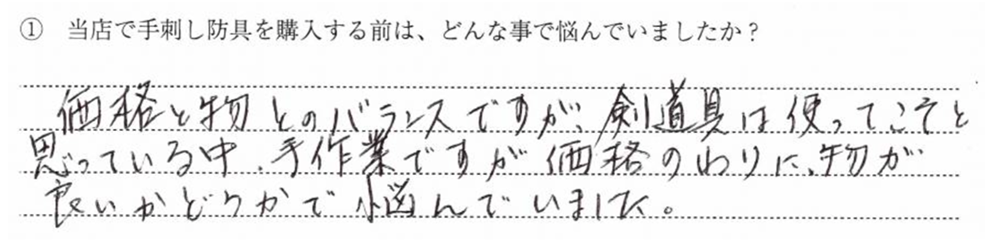 ① 当店で手刺し防具を購入する前は、どんな事で悩んでいましたか？
価格と物とのバランスですが、剣道具は使ってこそと
思っている中、手作業ですが価格のわりに、物が
良いかどうかで悩んでいました。